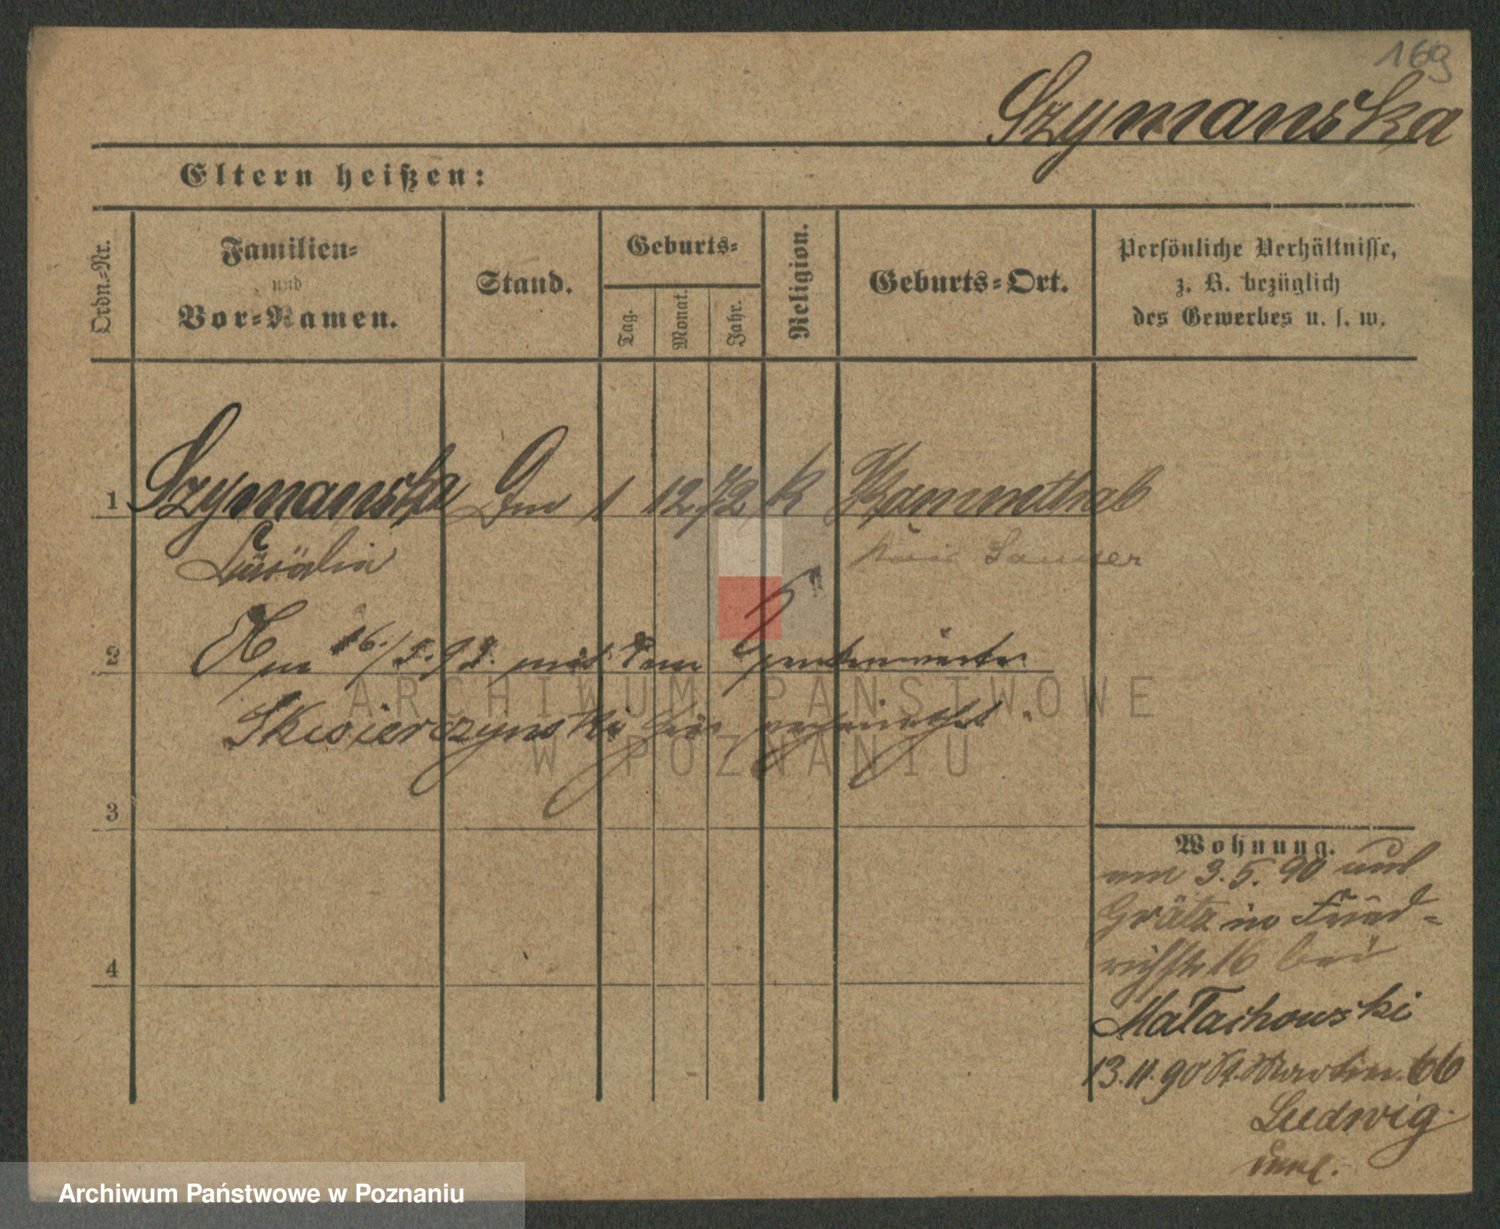 169
Szymanska
Eltern heißen:
Ordn.-Nr.
Familien-
und
Vor-Namen.
Stand.
Geburts-
Tag.
Monat.
Jahr.
Religion.
Geburts-Ort.
Persönliche Verhältnisse,
z. B. bezüglich
des Gewerbes u. s. w.
1 Szymanska 1 12. 72 k
2 Am 16./5. mit dem
Skwierczynski hier
3
4
Wohnung.
am 3.5.90 aus
Grätz in Fried-
richstr 16 bei
Malachowski
13.11.90 St. Martin 66
Ludwig
ARCHIWUM PAŃSTWOWE
W POZNANIU
Archiwum Państwowe w Poznaniu